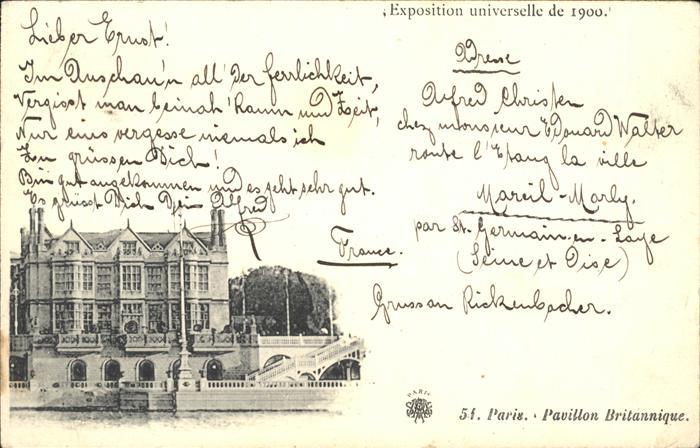 Exposition universelle de 1900.
Lieber Ernst!
Im Anschau'n all' der Herrlichkeit,
Vergisst man beinah' Raum und Zeit,
Nur eins vergesse niemals ich
Zu grüssen Dich!
Bin gut angekommen und es geht sehr gut.
Es grüsst Dich Dein Alfred
Adresse
Alfred Christen
chez monsieur Edouard Walter
route l'Etang la ville
Mareil-Marly.
par St. Germain-en-Laye
(Seine et Oise)
France.
Gruss an Rickenbacher.
PARIS
51. Paris. Pavillon Britannique.